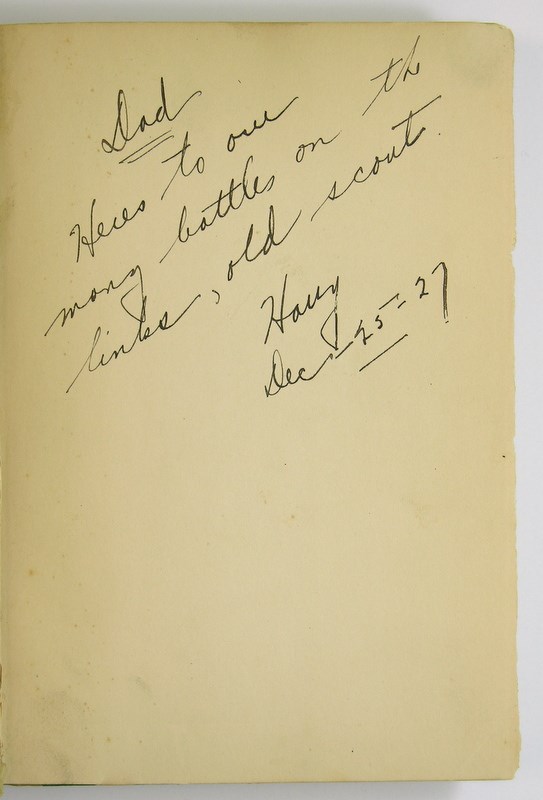 Dad
Heres to our
many battles on the
links, old scout.
Harry
Dec - 25 - 27